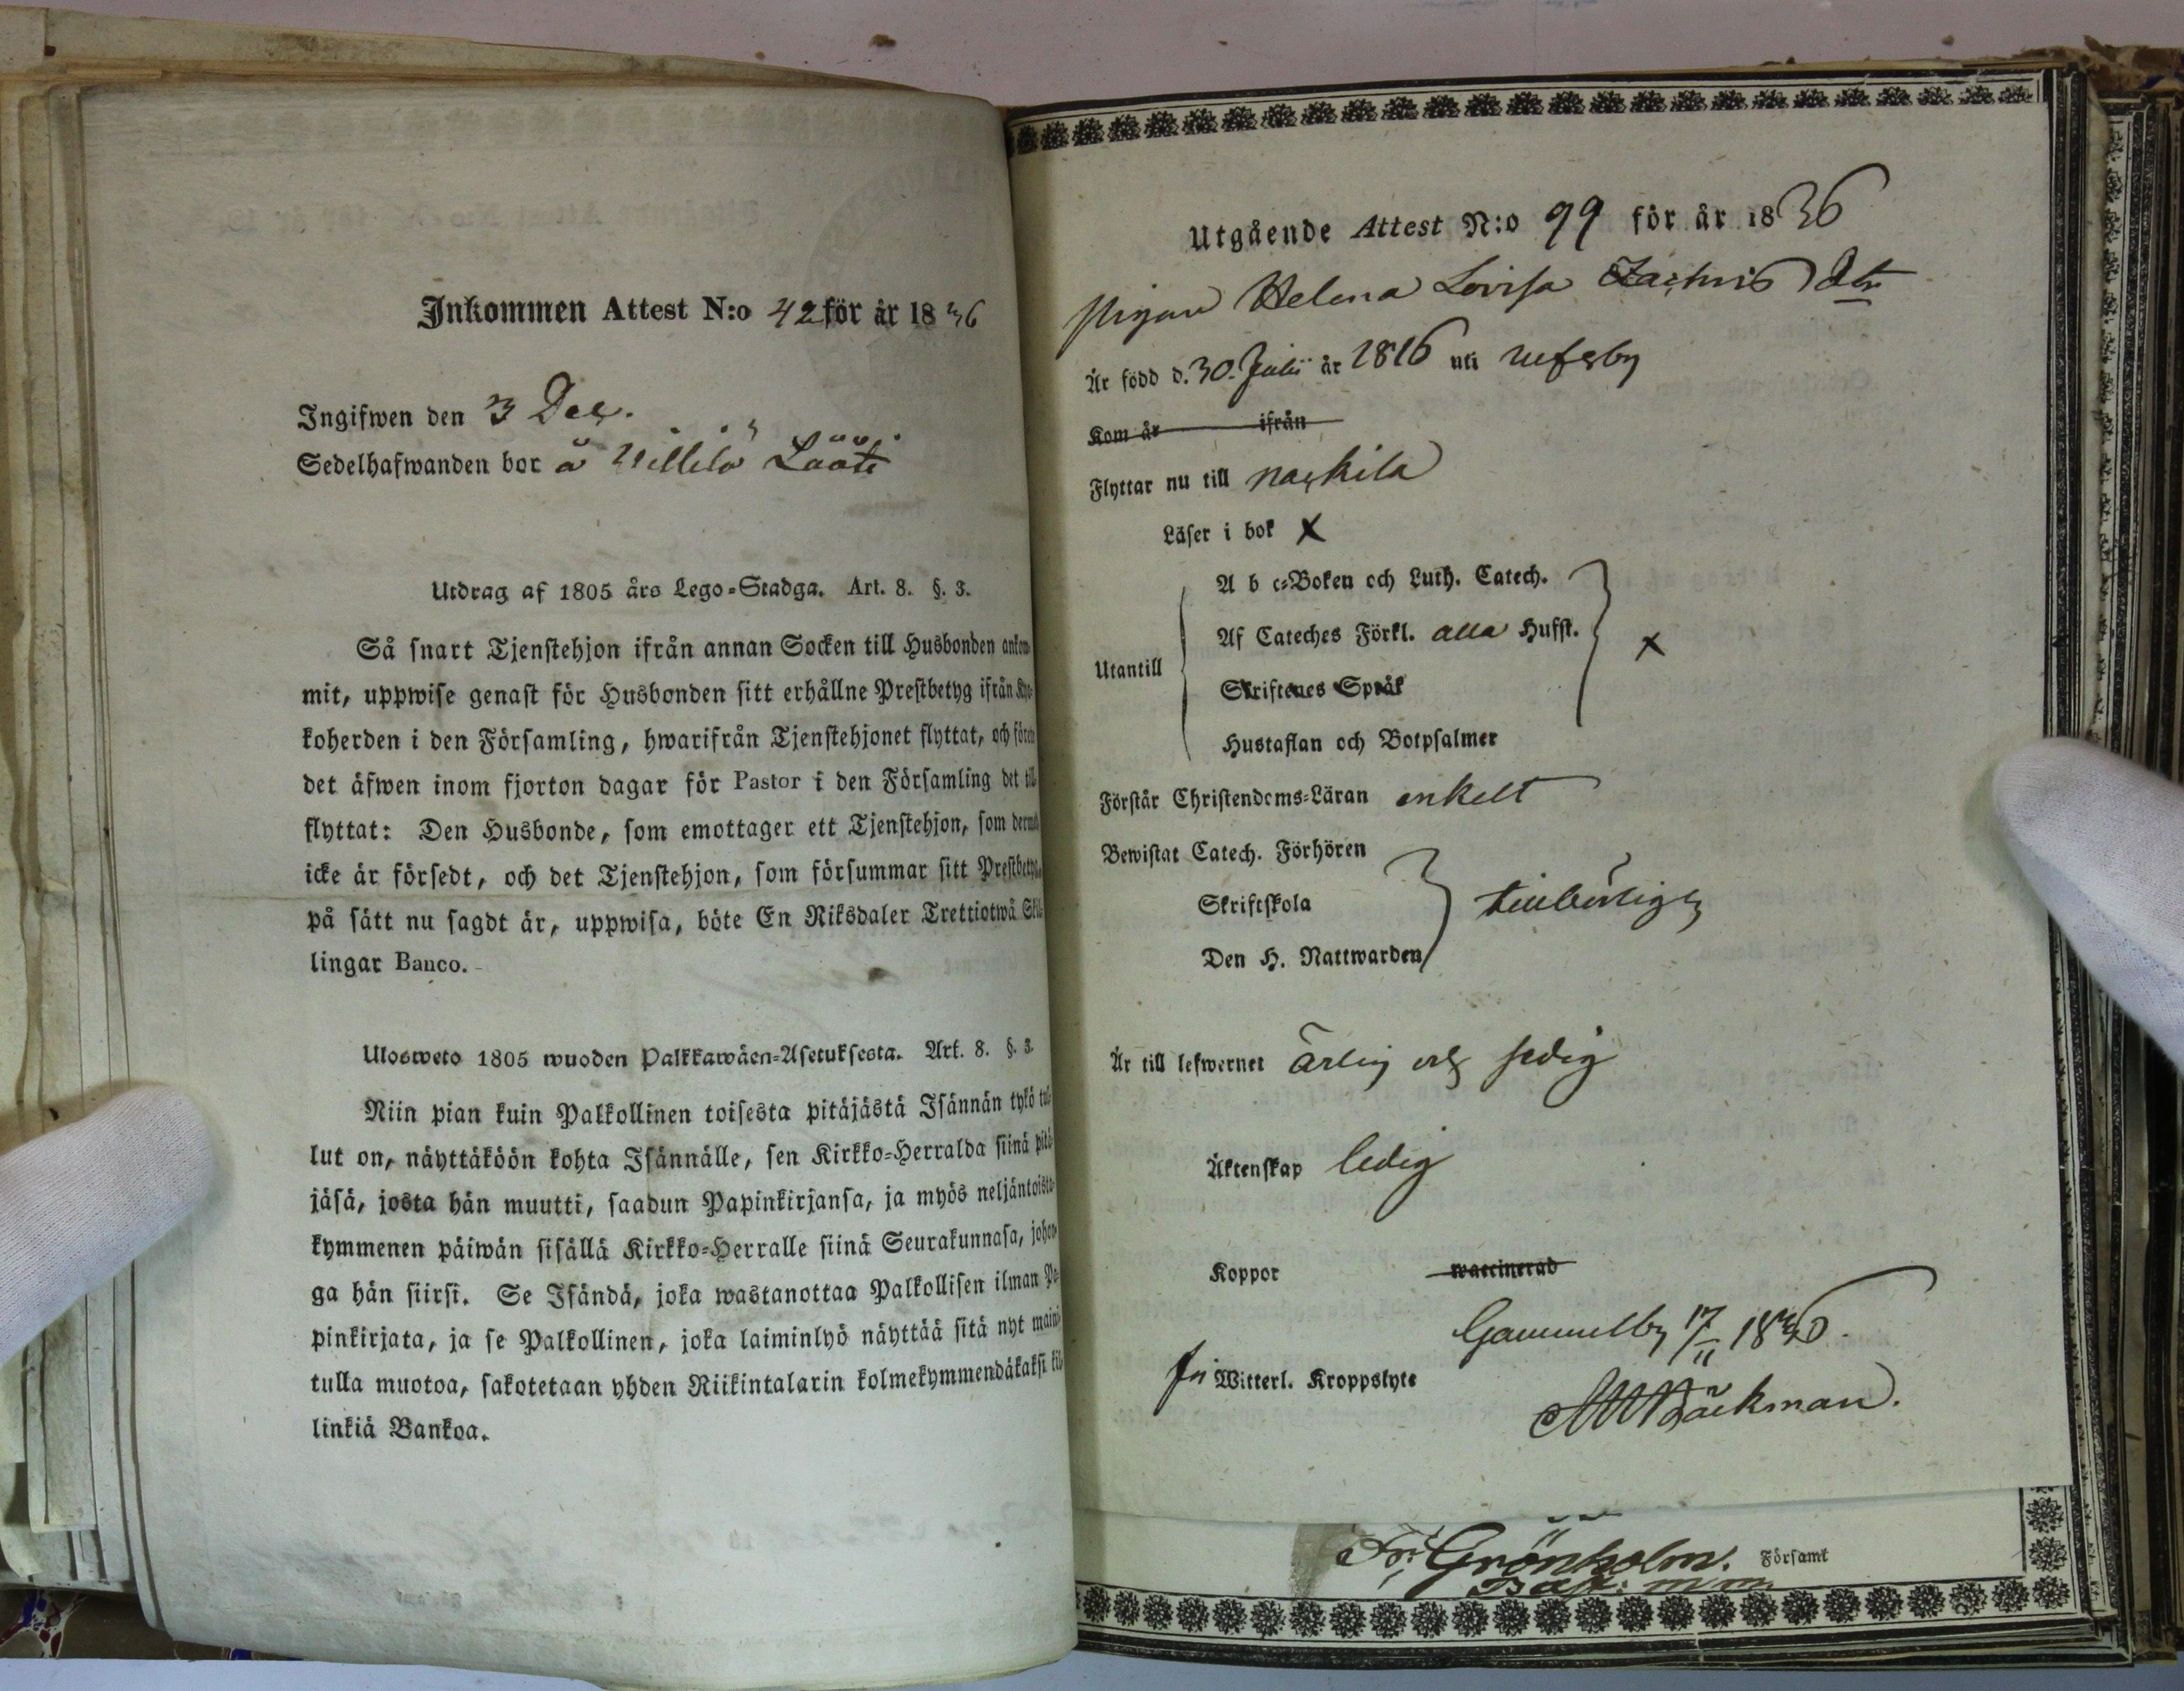 Inkommen Attest N:o 42 för år 1836
Ingifwen den 3 Dec.
Sedelhafwanden bor å Willilä Lööti
Utdrag af 1805 års Lego-Stadga. Art. 8. §. 3.
Så snart Tjenstehjon ifrån annan Socken till Husbonden ankom-
mit, uppwise genast för Husbonden sitt erhållne Prestbetyg ifrån Kyr-
koherden i den Församling, hwarifrån Tjenstehjonet flyttat, och förete
det äfwen inom fjorton dagar för Pastor i den Församling det till-
flyttat: Den Husbonde, som emottager ett Tjenstehjon, som dermed
icke är försedt, och det Tjenstehjon, som försummar sitt Prestbetyg,
på sätt nu sagdt är, uppwisa, böte En Riksdaler Trettiotwå Skil-
lingar Banco.
Ulosweto 1805 wuoden Palkkawäen-Asetuksesta. Art. 8. §. 3.
Niin pian kuin Palkollinen toisesta pitäjästä Isännän tykö tul-
lut on, näyttäköön kohta Isännälle, sen Kirkko-Herralda siinä pitä-
jäsä, josta hän muutti, saadun Papinkirjansa, ja myös neljäntoista-
kymmenen päiwän sisällä Kirkko-Herralle siinä Seurakunnasa, johon-
ga hän siirsi. Se Isändä, joka wastanottaa Palkollisen ilman Pa-
pinkirjata, ja se Palkollinen, joka laiminlyö näyttää sitä nyt maini-
tulla muotoa, sakotetaan yhden Riikintalarin kolmekymmendäkaksi kil-
linkiä Bankoa.
Utgående Attest N:o 99 för år 1836
Pigan Helena Lovisa Zachris Dtr
Är född d. 30. Julii år 1816 uti Ulfsby
Kom år ifrån
Flyttar nu till Nackila
Läser i bok X
A b c-Boken och Luth. Catech.
Af Cateches Förkl. alla Hufst.
Utantill
X
Skriftenes Språk
Hustaflan och Botpsalmer
Förstår Christendoms-Läran enkelt
Bewistat Catech. Förhören
Skriftskola tillbörligen
Den H. Nattwarden
Är till lefwernet ärlig och sedig
Äktenskap ledig
Koppor waccinerad
Gammelby 17/11 1836.
Witterl. Kroppslyte
Bäckman.
Grönholm. Församl